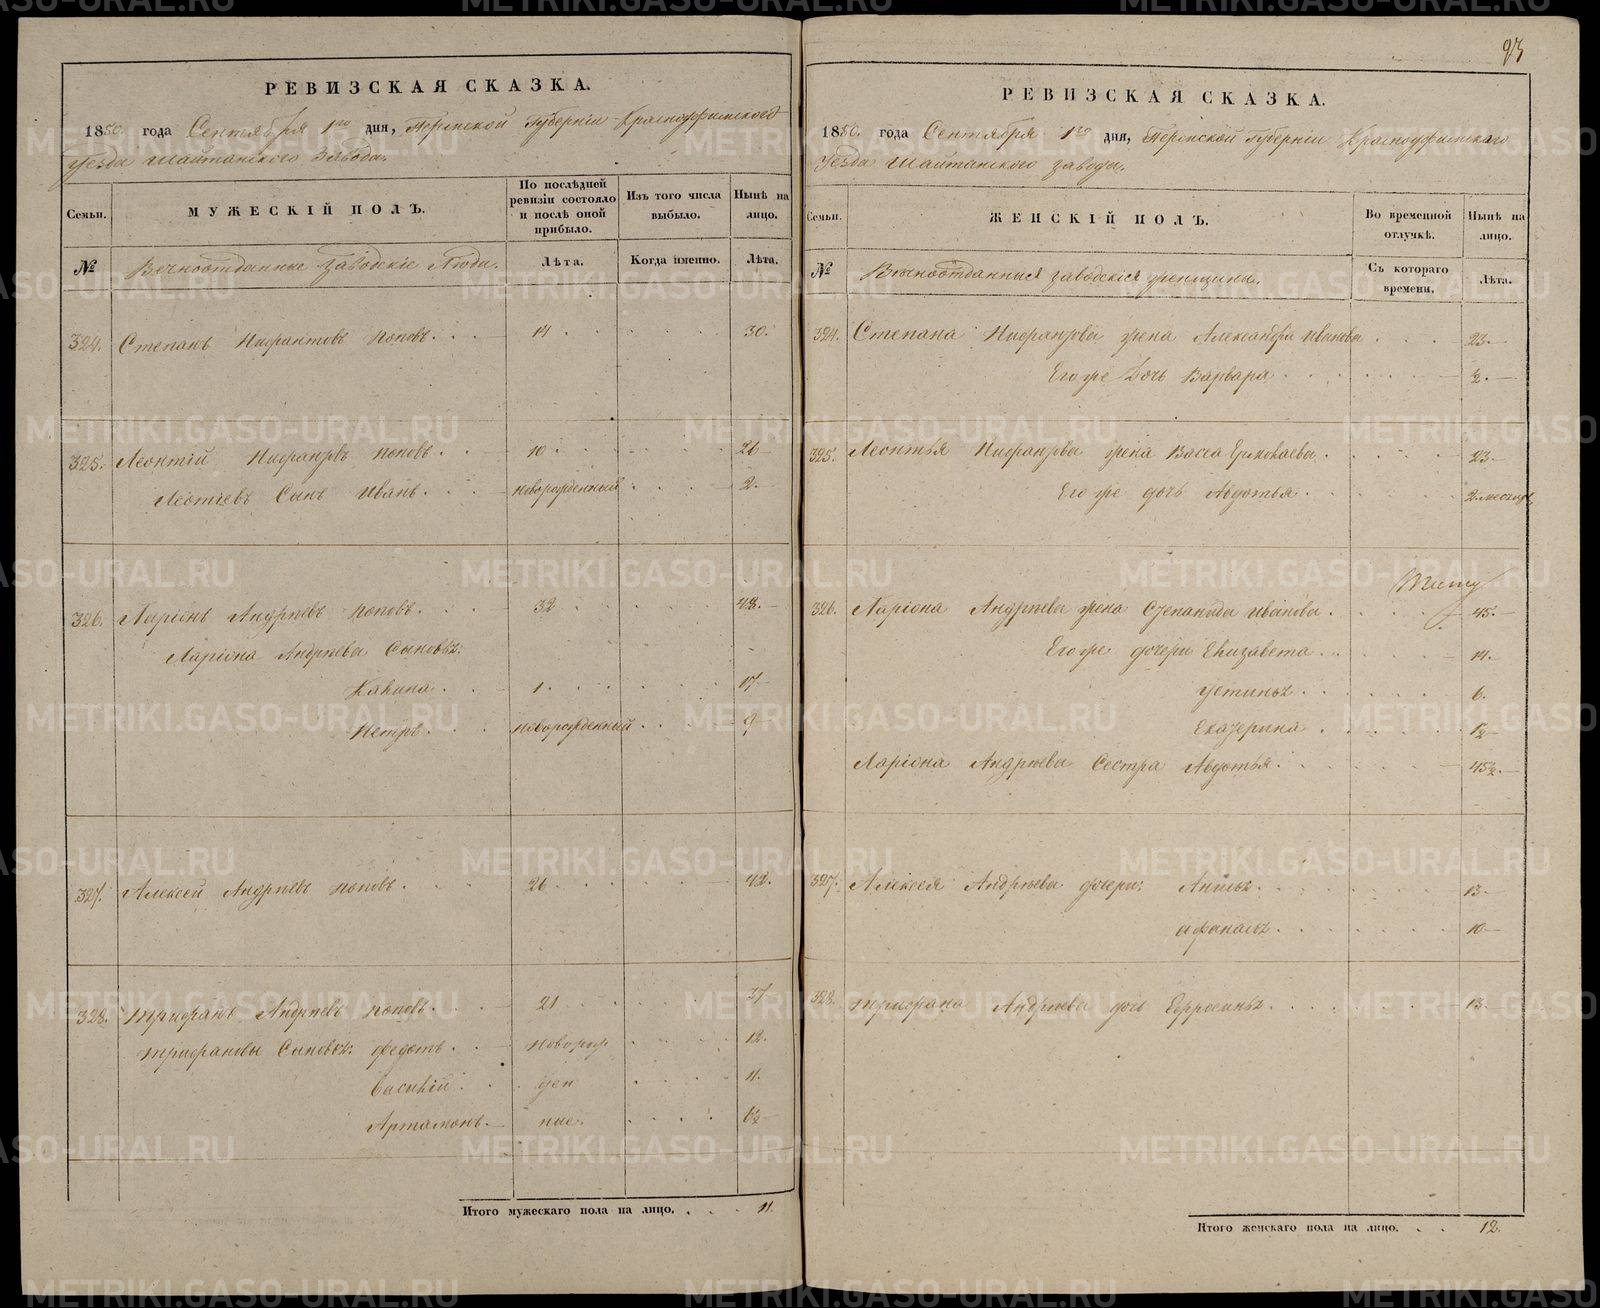 РЕВИЗСКАЯ СКАЗКА.
1850 года Сентября 1го дня, Пермской Губернiи Красноуфимскаго
Уезда Шайтанскаго Завода.
Семьи. МУЖЕСКIЙ ПОЛЪ. По послѣдней ревизiи состояло и послѣ оной прибыло. Изъ того числа выбыло. Нынѣ на лицо.
№ Вечноотданные заводскiе Люди. Лѣта. Когда именно. Лѣта.
324. Степанъ Нифантовъ Поповъ. 14 30.
325. Леонтiй Нифантовъ Поповъ. 10 26
Леонтiевъ Сынъ Иванъ. новорожденный 2.
326. Ларiонъ Андреевъ Поповъ. 32 48.
Ларiона Андреева Сыновья:
Калина. 1. 17
Петръ. новорожденный 9
327. Алексей Андреевъ Поповъ. 26 42.
328. Трифанъ Андреевъ Поповъ. 21 37
Трифановы Сыновья: Федотъ. новорож 12.
Василiй. ден 11.
Артамонъ. ные. 1½
Итого мужескаго пола на лицо. 11.
93
РЕВИЗСКАЯ СКАЗКА.
1850. года Сентября 1го дня, Пермской Губернiи Красноуфимскаго
Уезда Шайтанскаго завода.
Семьи. ЖЕНСКIЙ ПОЛЪ. Во временной отлучкѣ. Нынѣ на лицо.
№ Вечноотданныя заводскiя женщины. Съ котораго времени. Лѣта.
324. Степана Нифантова жена Александра Иванова 23.
Его же Дочь Варвара ½.
325. Леонтья Нифантова жена Васса Ермолаева. 23
Его же дочь Авдотья 2. месяца
326. Ларiона Андреева жена Степанида Иванова. 45.
Его же дочери Елизавета 14.
Устинья 6.
Екатерина 1½
Ларiона Андреева Сестра Авдотья. 45½.
327. Алексея Андреева дочери: Анисья. 13
Афанасья. 10
328. Трифана Андреева дочь Ефросинья. 13.
Итого женскаго пола на лицо. 12.
METRIKI.GASO-URAL.RU